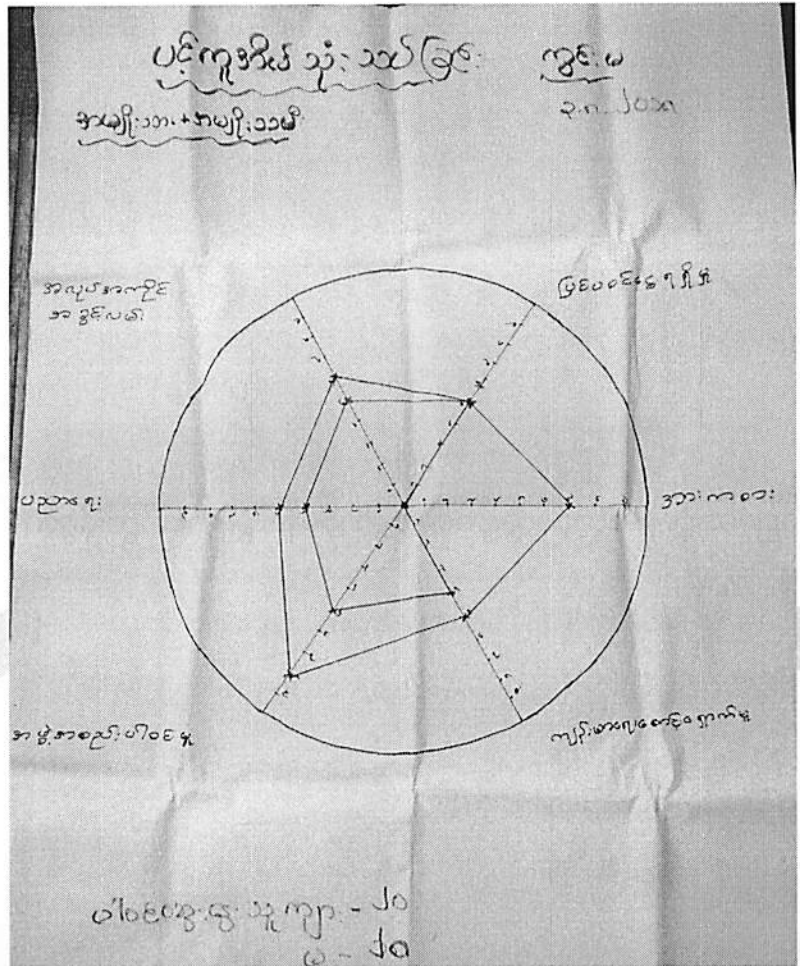 ပင့်ကူအိမ် သုံးသပ်ခြင်း ကွင်းမ
၃.၈.၂၀၁၈
အမျိုးသား+အမျိုးသမီး
အလုပ်အကိုင်
အခွင့်လမ်း
ပြင်ပဝင်ငွေရရှိမှု
ပညာရေး
အားကစား
အဖွဲ့အစည်းပါဝင်မှု
ကျန်းမာရေးစောင့်ရှောက်မှု
ပါဝင်ဆွေးနွေးသူ ကျား - ၂၀
မ - ၂၀